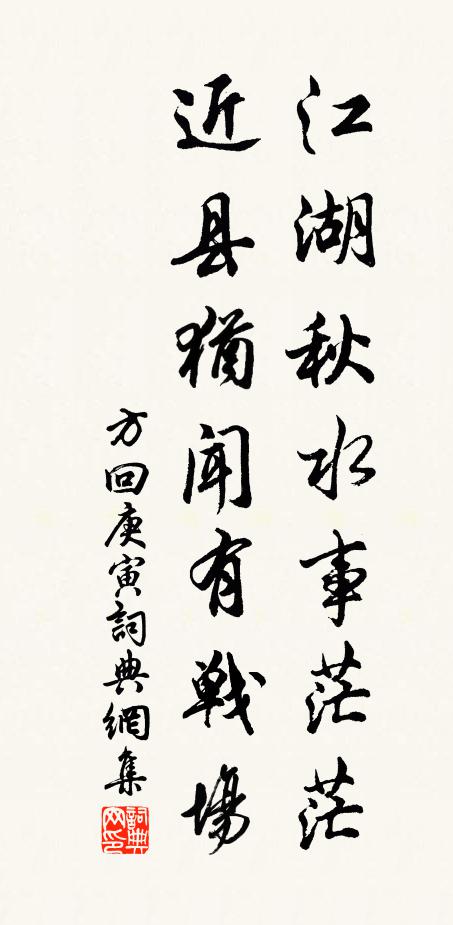 江湖秋水事茫茫
近县猶闻有戦場
方回庚寅詞典網集
詞典
网印